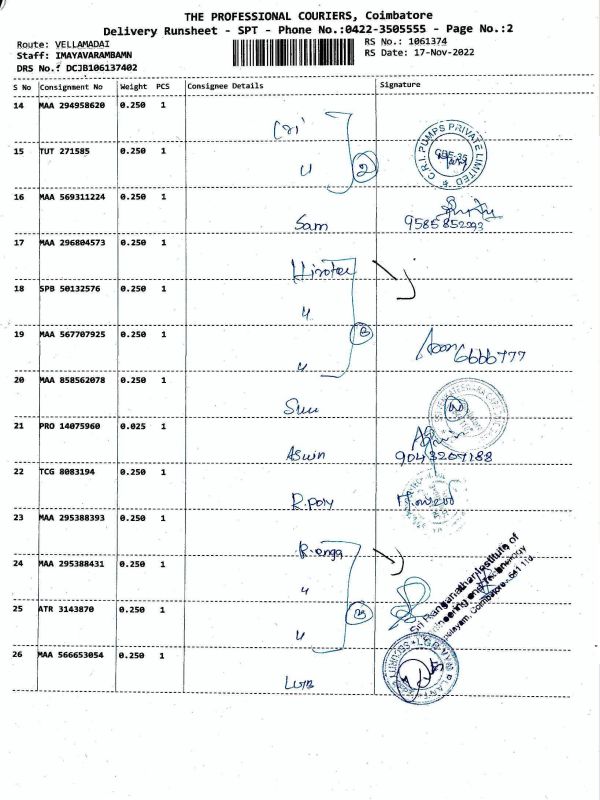 THE PROFESSIONAL COURIERS, Coimbatore
Delivery Runsheet - SPT - Phone No.:0422-3505555 - Page No.:2
Route: VELLAMADAI
RS No.: 1061374
Staff: IMAYAVARAMBAMN
RS Date: 17-Nov-2022
DRS No.: DCJB106137402
S No Consignment No Weight PCS Consignee Details Signature
14 MAA 294958620 0.250 1
Cri
15 TUT 271585 0.250 1
u 2
C.R.I. PUMPS PRIVATE LIMITED
16 MAA 569311224 0.250 1
Sam 9585852093
17 MAA 296804573 0.250 1
Hirotec
18 SPB 50132576 0.250 1
u
19 MAA 567707925 0.250 1
u 3
6666777
20 MAA 858562078 0.250 1
21 PRO 14075960 0.025 1
Aswin 9043207188
22 TCG 8083194 0.250 1
R.poly
23 MAA 295388393 0.250 1
R.enga
24 MAA 295388431 0.250 1
u
25 ATR 3143870 0.250 1
u 3
Sri Ranganathar Institute of
Engineering and Technology
Coimbatore - 641 110.
26 MAA 566653054 0.250 1